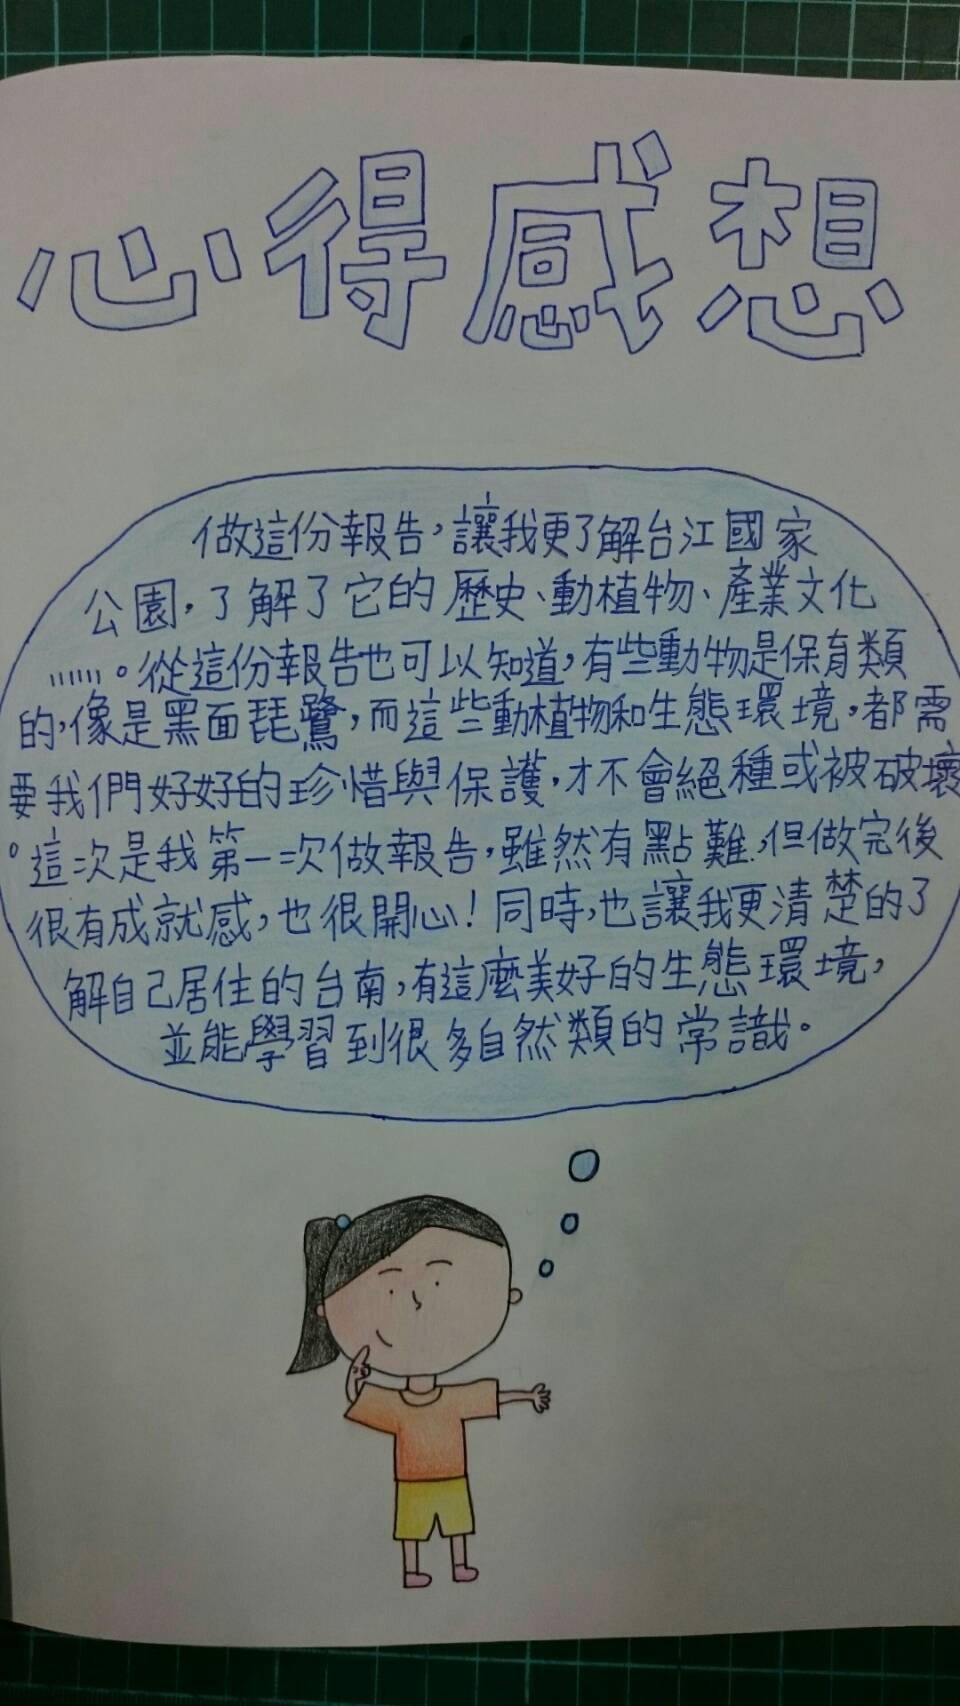 心得感想
做這份報告，讓我更了解台江國家
公園，了解了它的歷史、動植物、產業文化
……。從這份報告也可以知道，有些動物是保育類
的，像是黑面琵鷺，而這些動植物和生態環境，都需
要我們好好的珍惜與保護，才不會絕種或被破壞
。這次是我第一次做報告，雖然有點難，但做完後
很有成就感，也很開心！同時，也讓我更清楚的了
解自己居住的台南，有這麼美好的生態環境，
並能學習到很多自然類的常識。